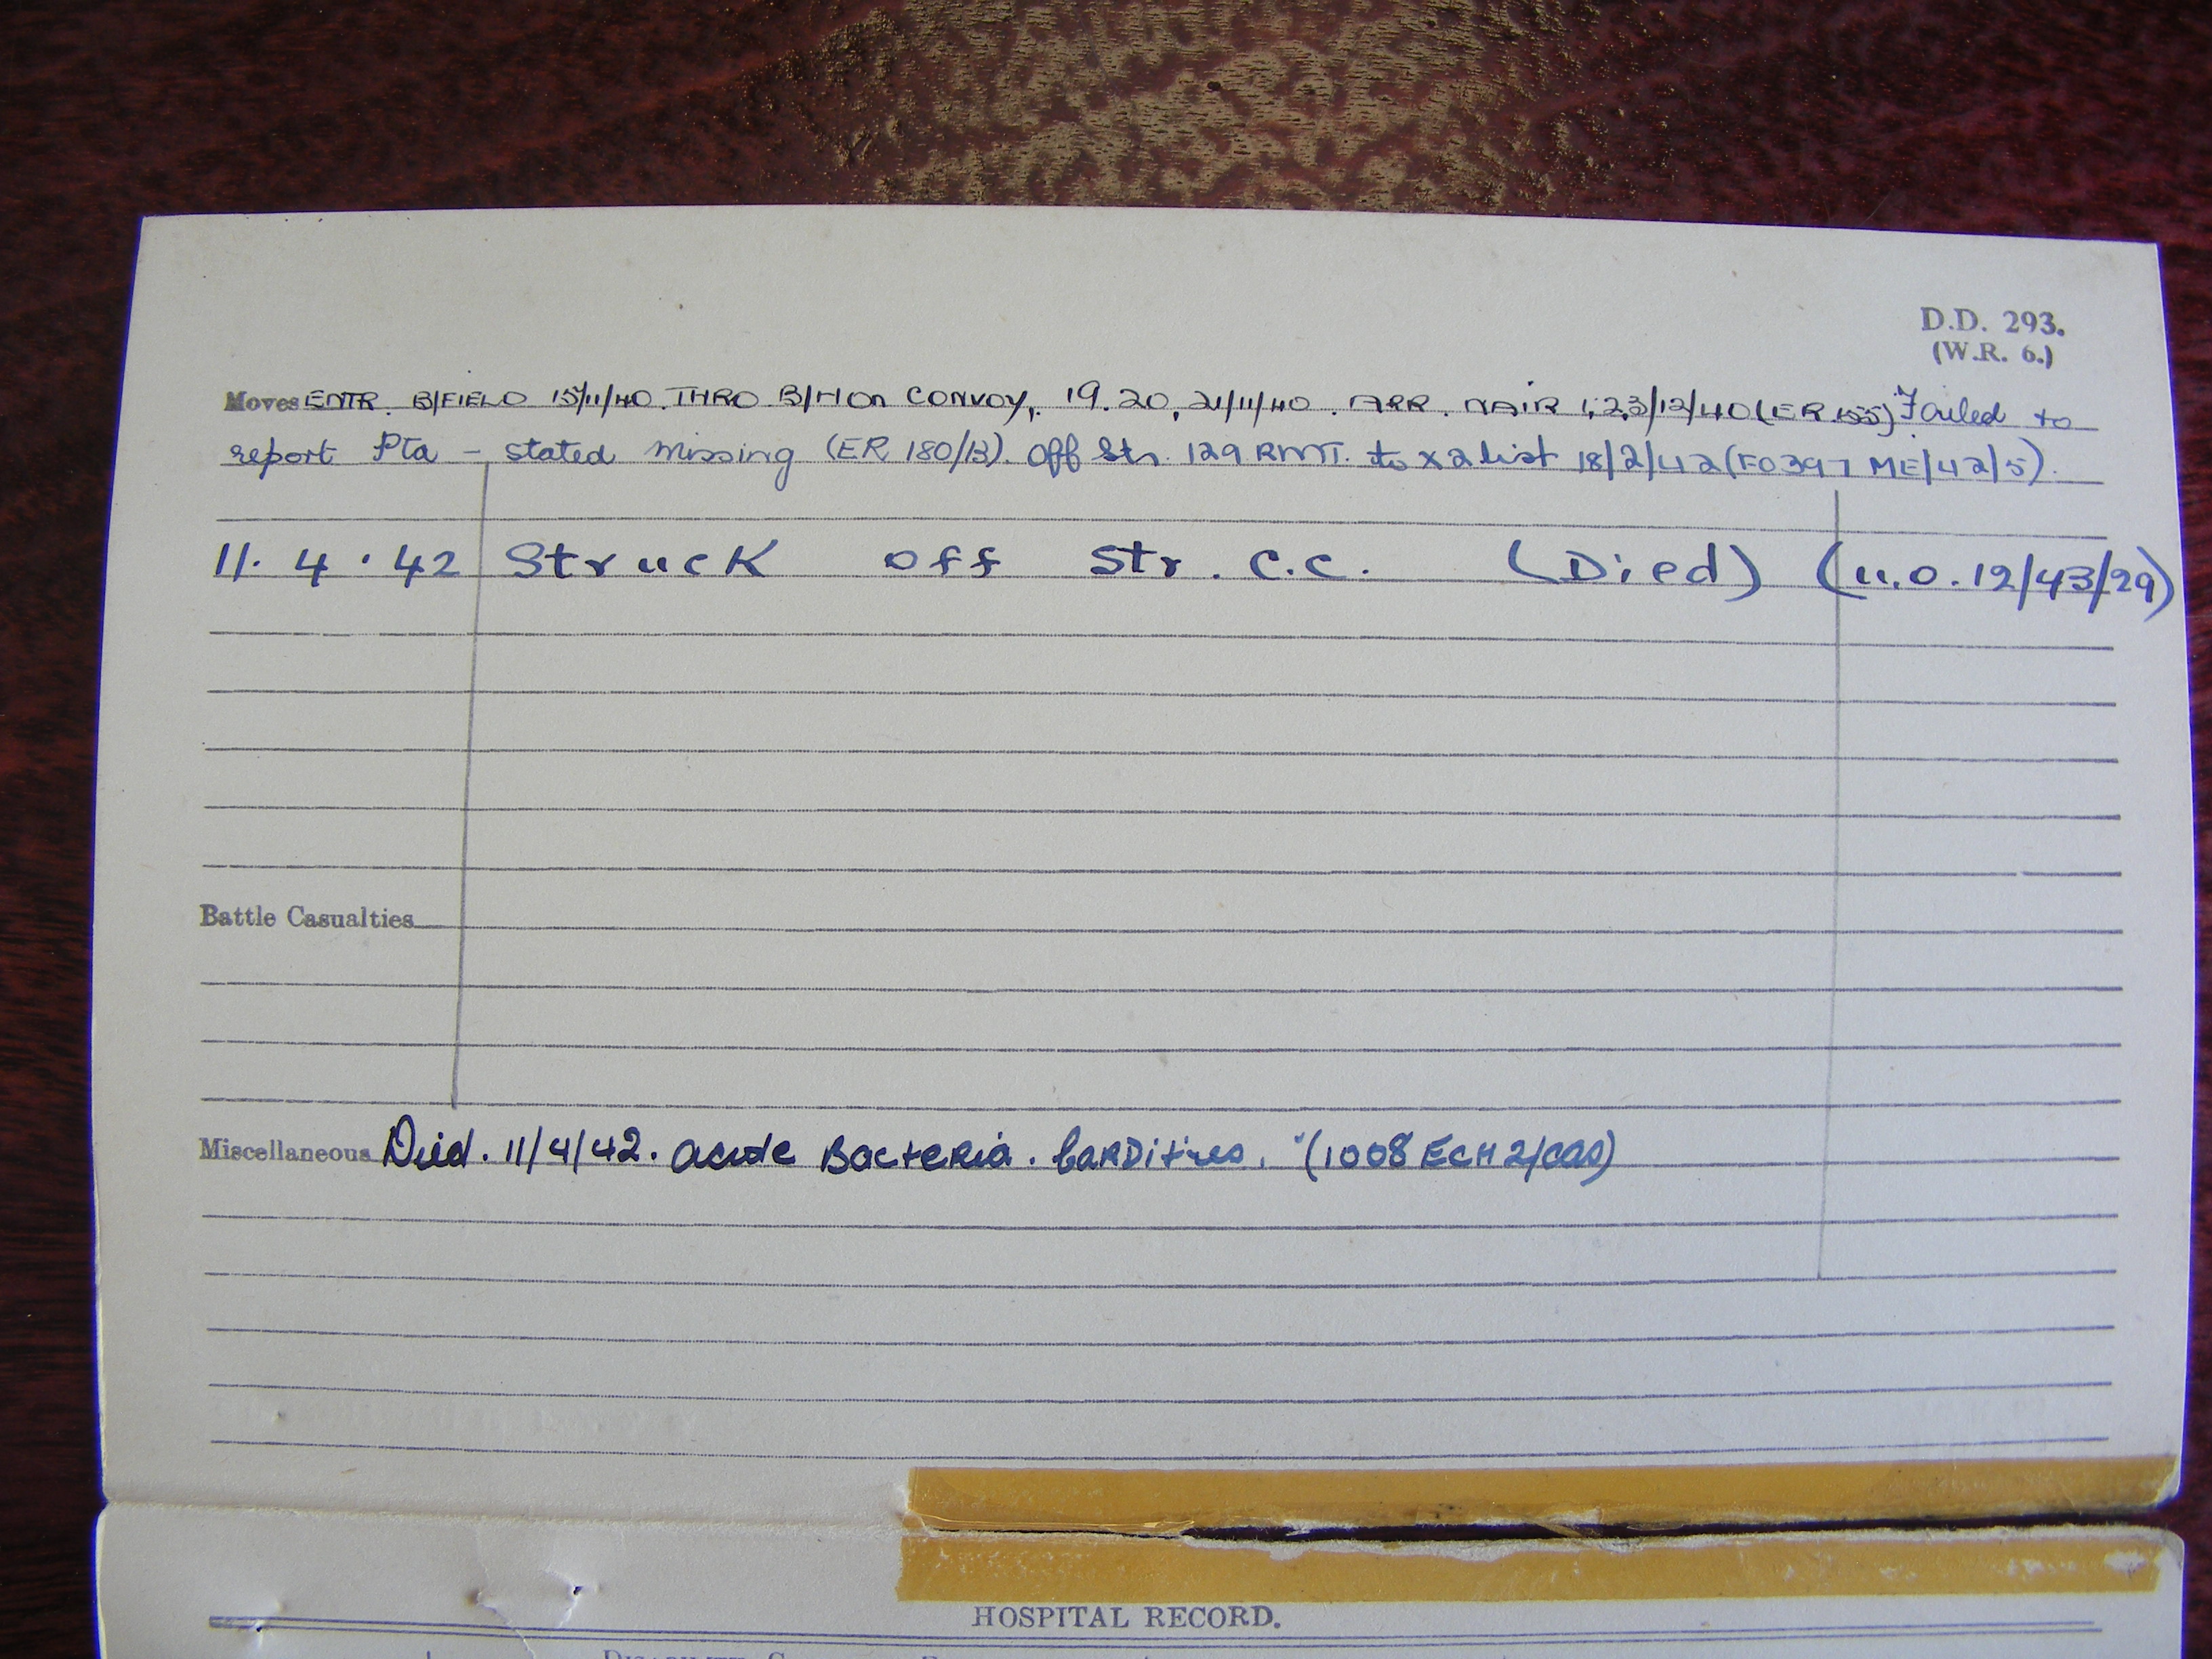 D.D. 293.
(W.R. 6.)
Moves ENTR. B/FIELD 15/11/40. THRO B/H on CONVOY, 19.20, 21/11/40. ARR. NAIR 1,2,3/12/40 (ER.155) Failed to
report Pta - stated missing (ER 180/B). Off Str. 129 RMT. to x2 list 18/2/42 (FO397 ME/42/5).
11.4.42 Struck off str. C.C. (Died) (u.o. 12/43/29)
Battle Casualties
Miscellaneous Died. 11/4/42. acute Bacteria. CarDities. "(1008 ECH 2/cas)
HOSPITAL RECORD.